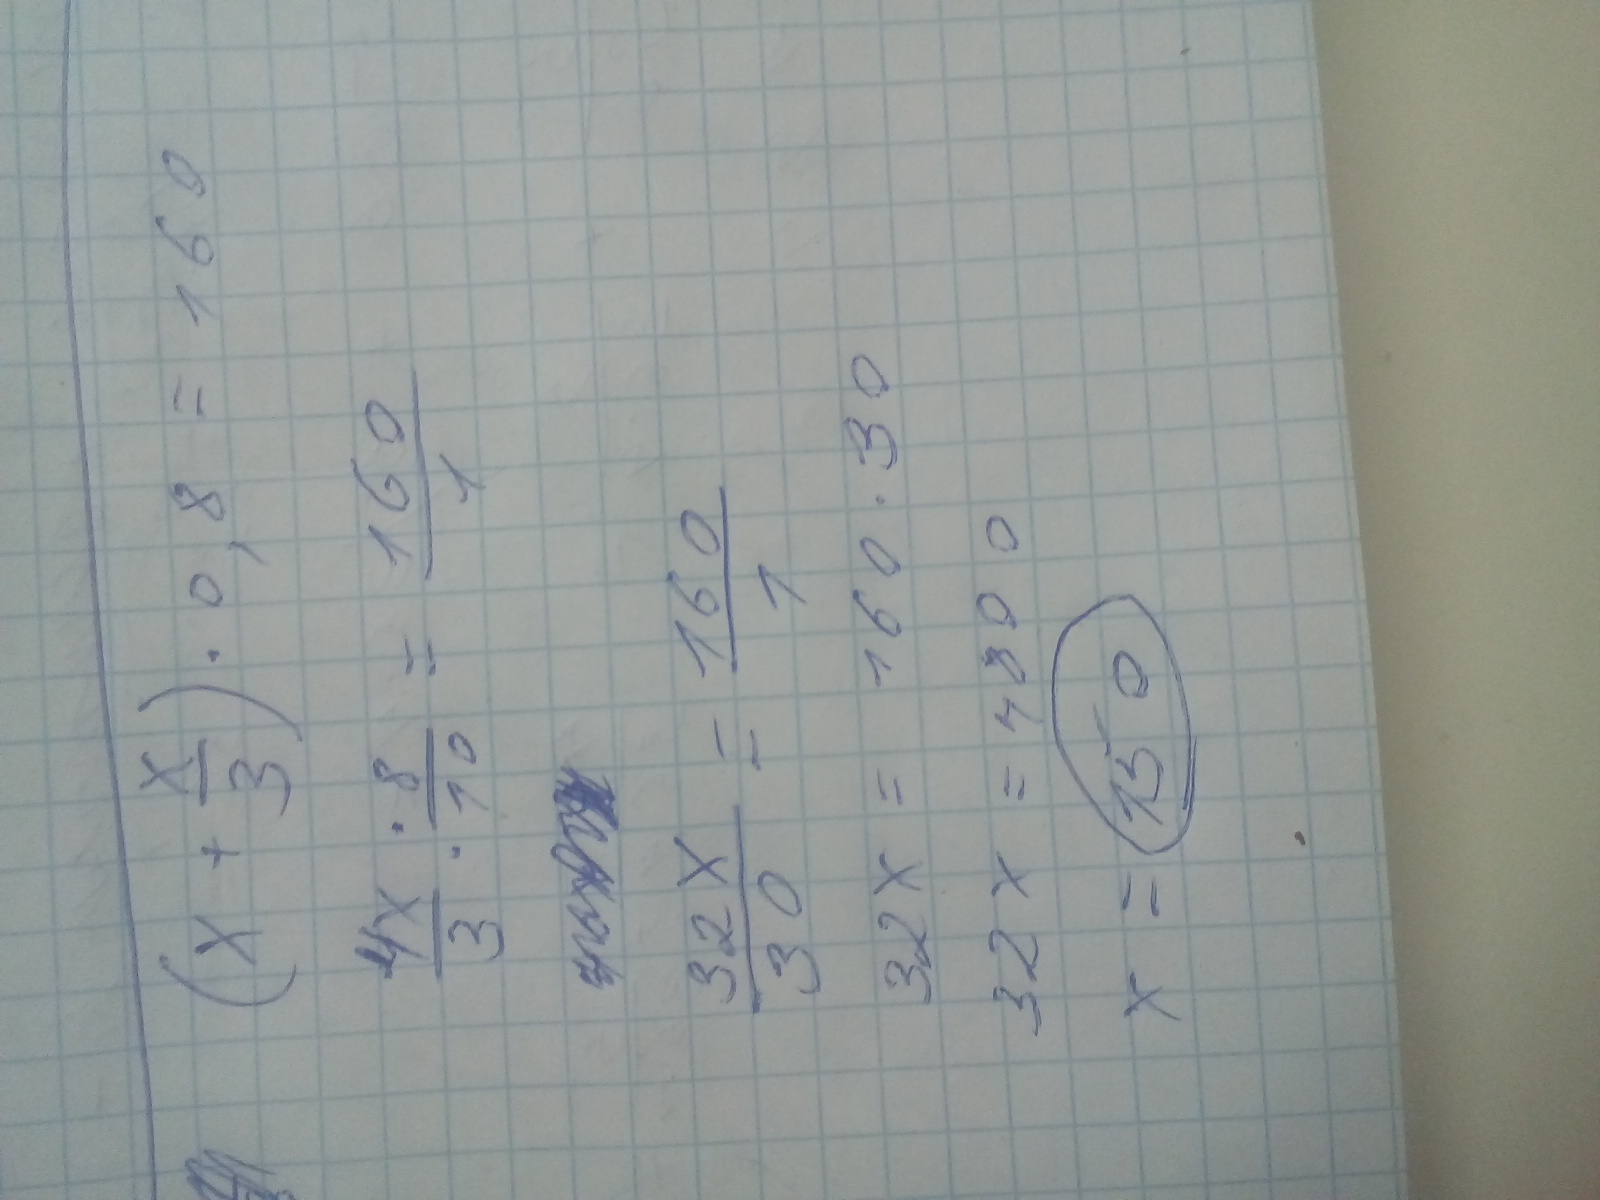 (x + x/3) · 0,8 = 160
4x/3 · 8/10 = 160/1
32x/30 = 160/1
32x = 160 · 30
32x = 4800
x = 150